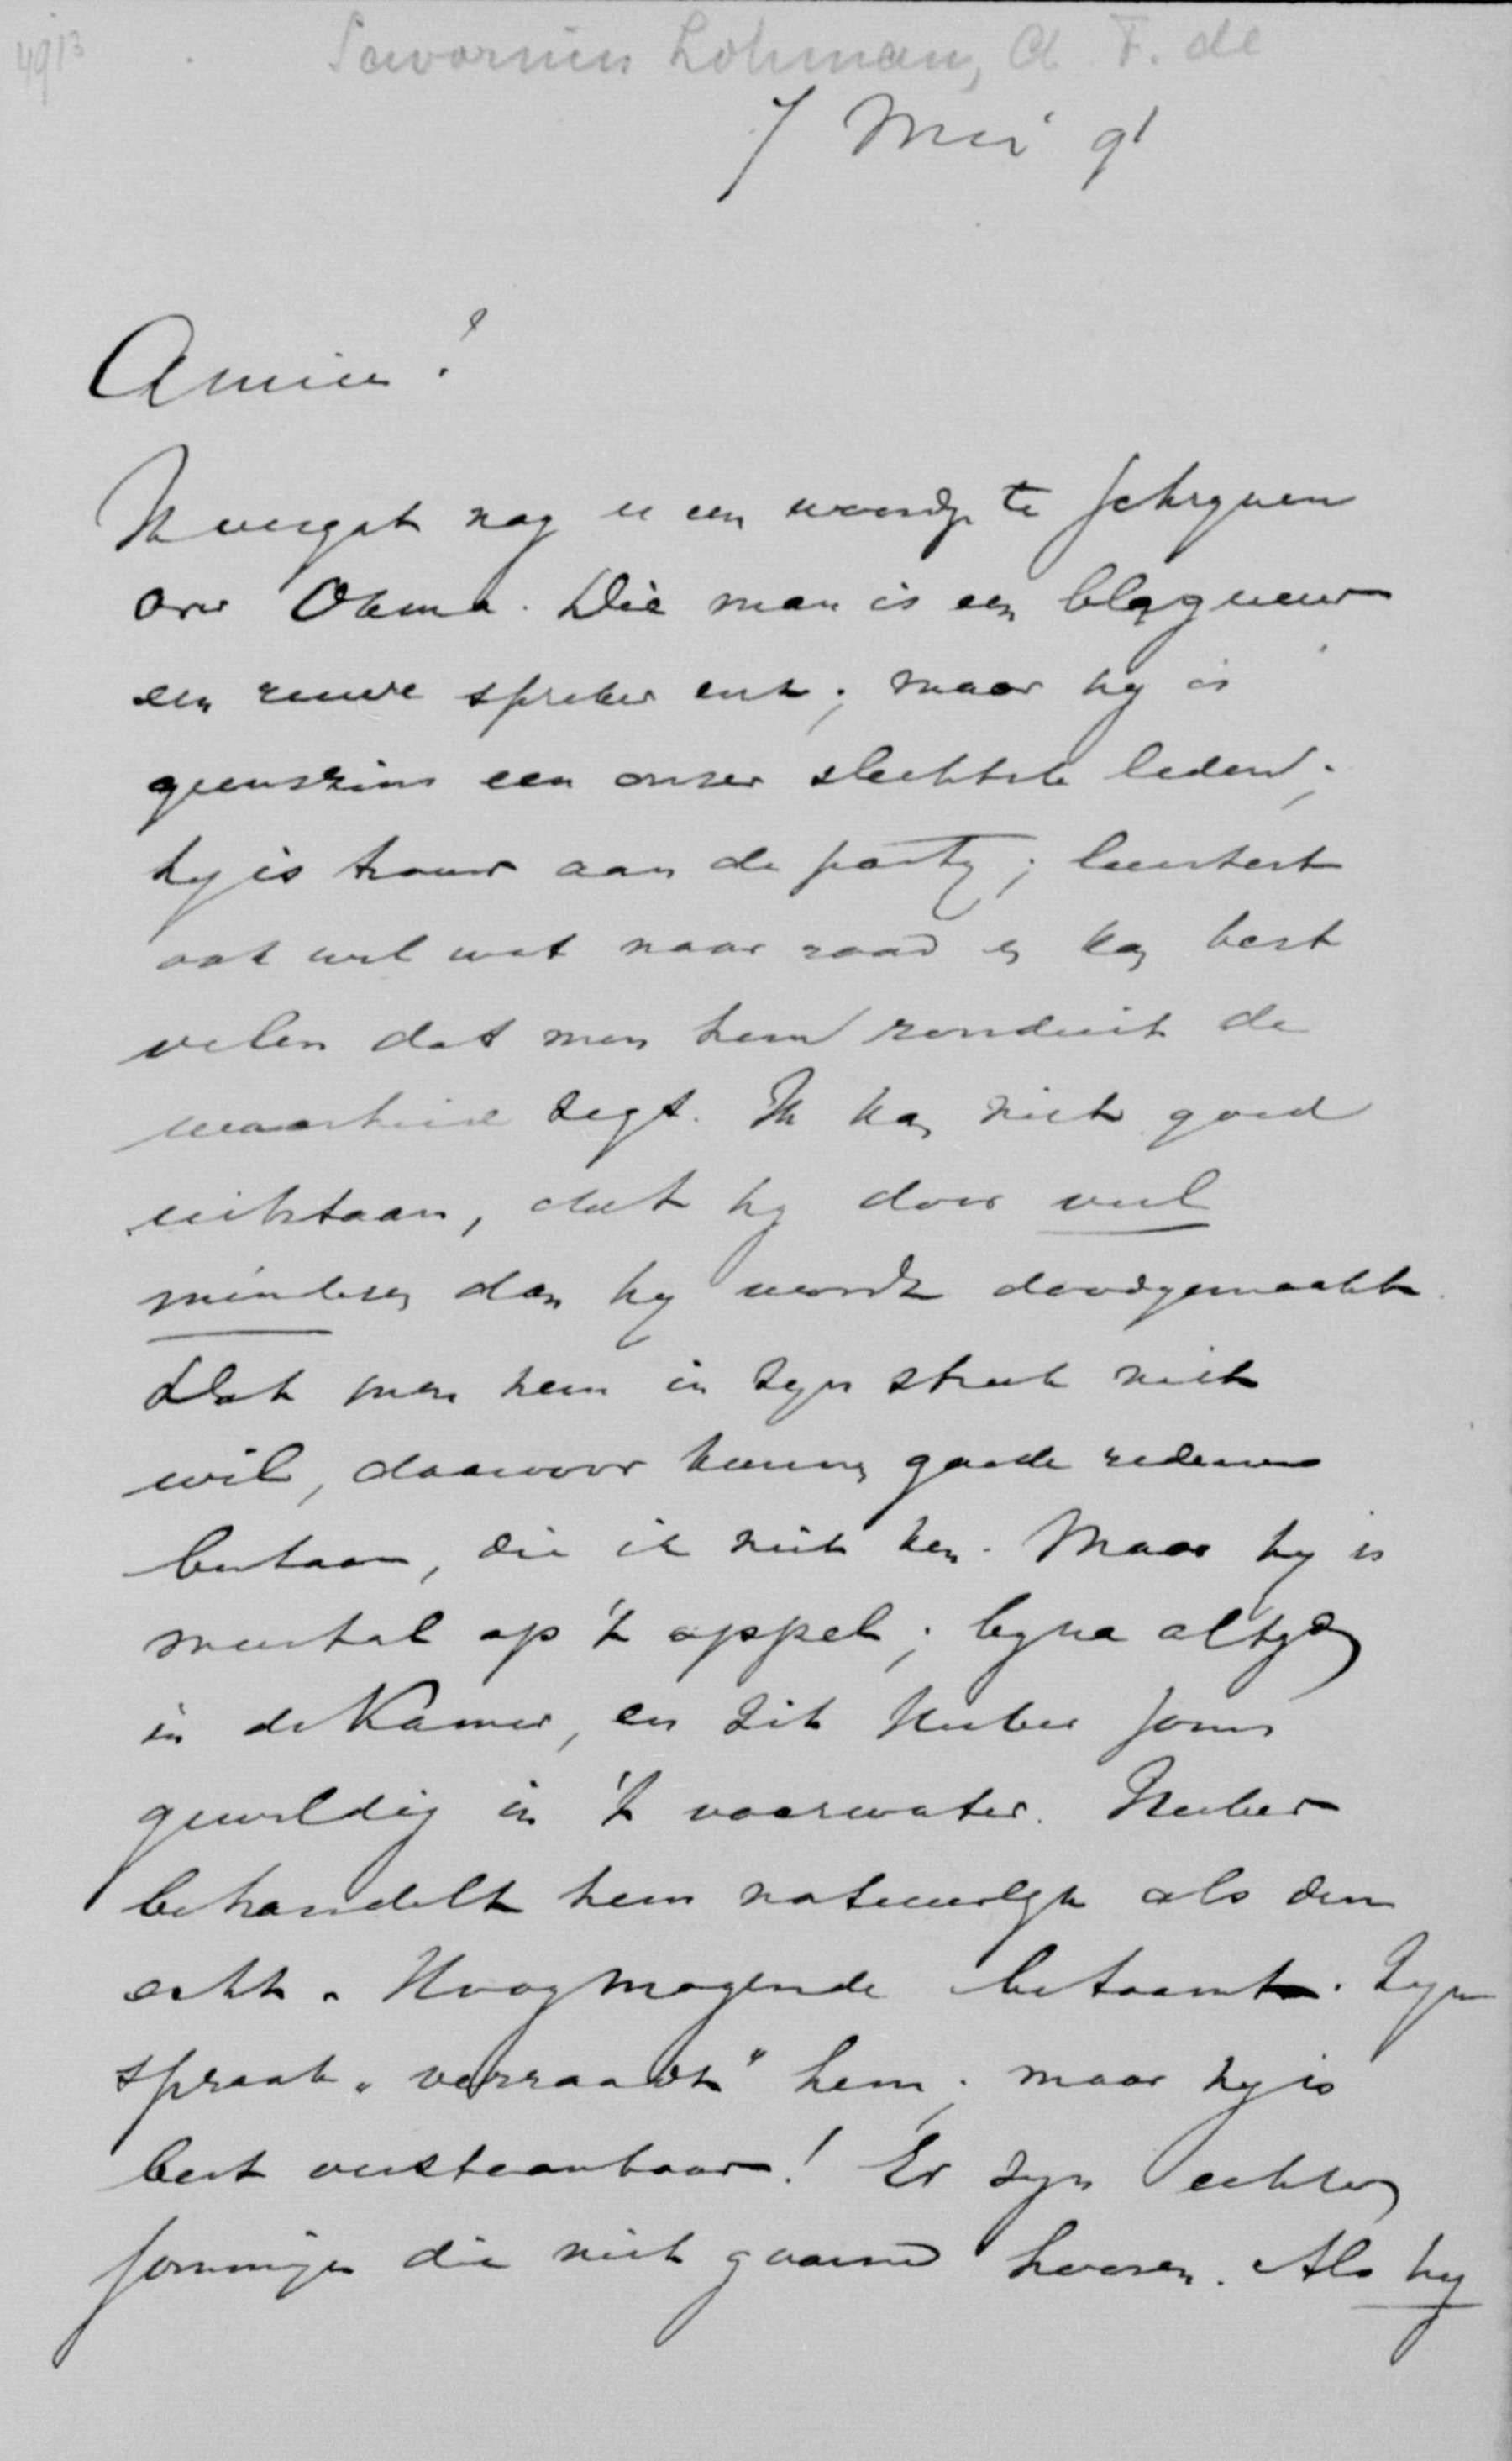 4913
Savornin Lohman, A. F. de
7 Mei 91
Amice!
Ik vergat nog u een woordje te schryven
over Okma. Die man is een blagueur
een ruwe spreker enz; maar hy is
geenszins een onzer slechtste leden;
hy is trouw aan de party; luistert
ook wel wat naar raad en kan best
velen dat men hem ronduit de
waarheid zegt. Ik kan niet goed
uitstaan, dat hy door veel
minderen dan hy wordt doodgemaakt.
Dat men hem in zyn streek niet
wil, daarvoor kunnen goede redenen
bestaan, die ik niet ken. Maar hy is
meestal op 't appel; byna altyd
in de Kamer, en zit Keuber soms
geweldig in 't vaarwater.
behandelt hem natuurlyk als den
echte Hoogmogende betaamt. Zyn
spraak "verraadt" hem; maar hy is
best verstaanbaar! Er zyn echter
sommigen die niet gaarne hooren. Als hy